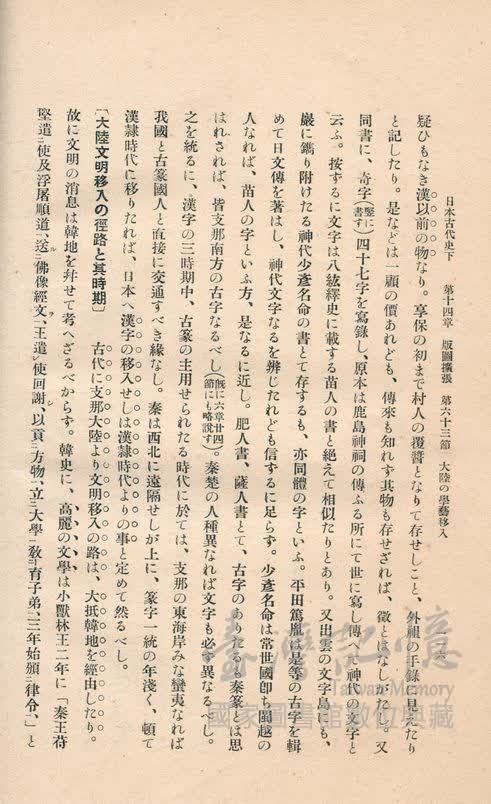 日本古代史下　第十四章　版圖擴張　第六十三節　大陸の學藝移入　一二六
疑ひもなき漢以前の物なり。享保の初まで村人の覆醬となりて存せしこと、外祖の手錄に見えたり
と記したり。是などは一顧の價あれども、傳來も知れず其物も存せざれば、徵とはなしがたし。又
同書に、奇字(竪に書す)四十七字を寫錄し、原本は鹿島神祠の傳ふる所にて世に寫し傳へて神代の文字と
云ふ。按するに文字は八紘繹史に載する苗人の書と絶えて相似たりとあり。又出雲の文字島にも、
巖に鐫り附けたる神代少彥名命の書とて存するも、亦同體の字といふ。平田篤胤は是等の古字を輯
めて日文傳を著はし、神代文字なるを辨じたれども信するに足らず。少彥名命は常世國卽ち閩越の
人なれば、苗人の字といふ方、是なるに近し。肥人書、薩人書とて、古字のありたるも秦篆とは思
はれされば、皆支那南方の古字なるべし(旣に六章廿四節にも略說す)。秦楚の人種異なれば文字も必ず異なるべし。
之を統るに、漢字の三時期中、古篆の主用せられたる時代に於ては、支那の東海岸みな蠻夷なれば
我國と古篆國人と直接に交通すべき緣なし。秦は西北に遠隔せしが上に、篆字一統の年淺く、頓て
漢隷時代に移りたれば、日本へ漢字の移入せしは漢隷時代よりの事と定めて然るべし。
〔大陸文明移入の徑路と其時期〕　古代に支那大陸より文明移入の路は、大抵韓地を經由したり。
故に文明の消息は韓地を幷せて考へざるべからず。韓史に、高麗の文學は小獸林王二年に「秦王苻
堅遣使及浮屠順道、送佛像經文、王遣使回謝、以貢方物、立大學敎育子弟、三年始頒律令、」と
臺灣記憶
Taiwan Memory
國家圖書館數位典藏